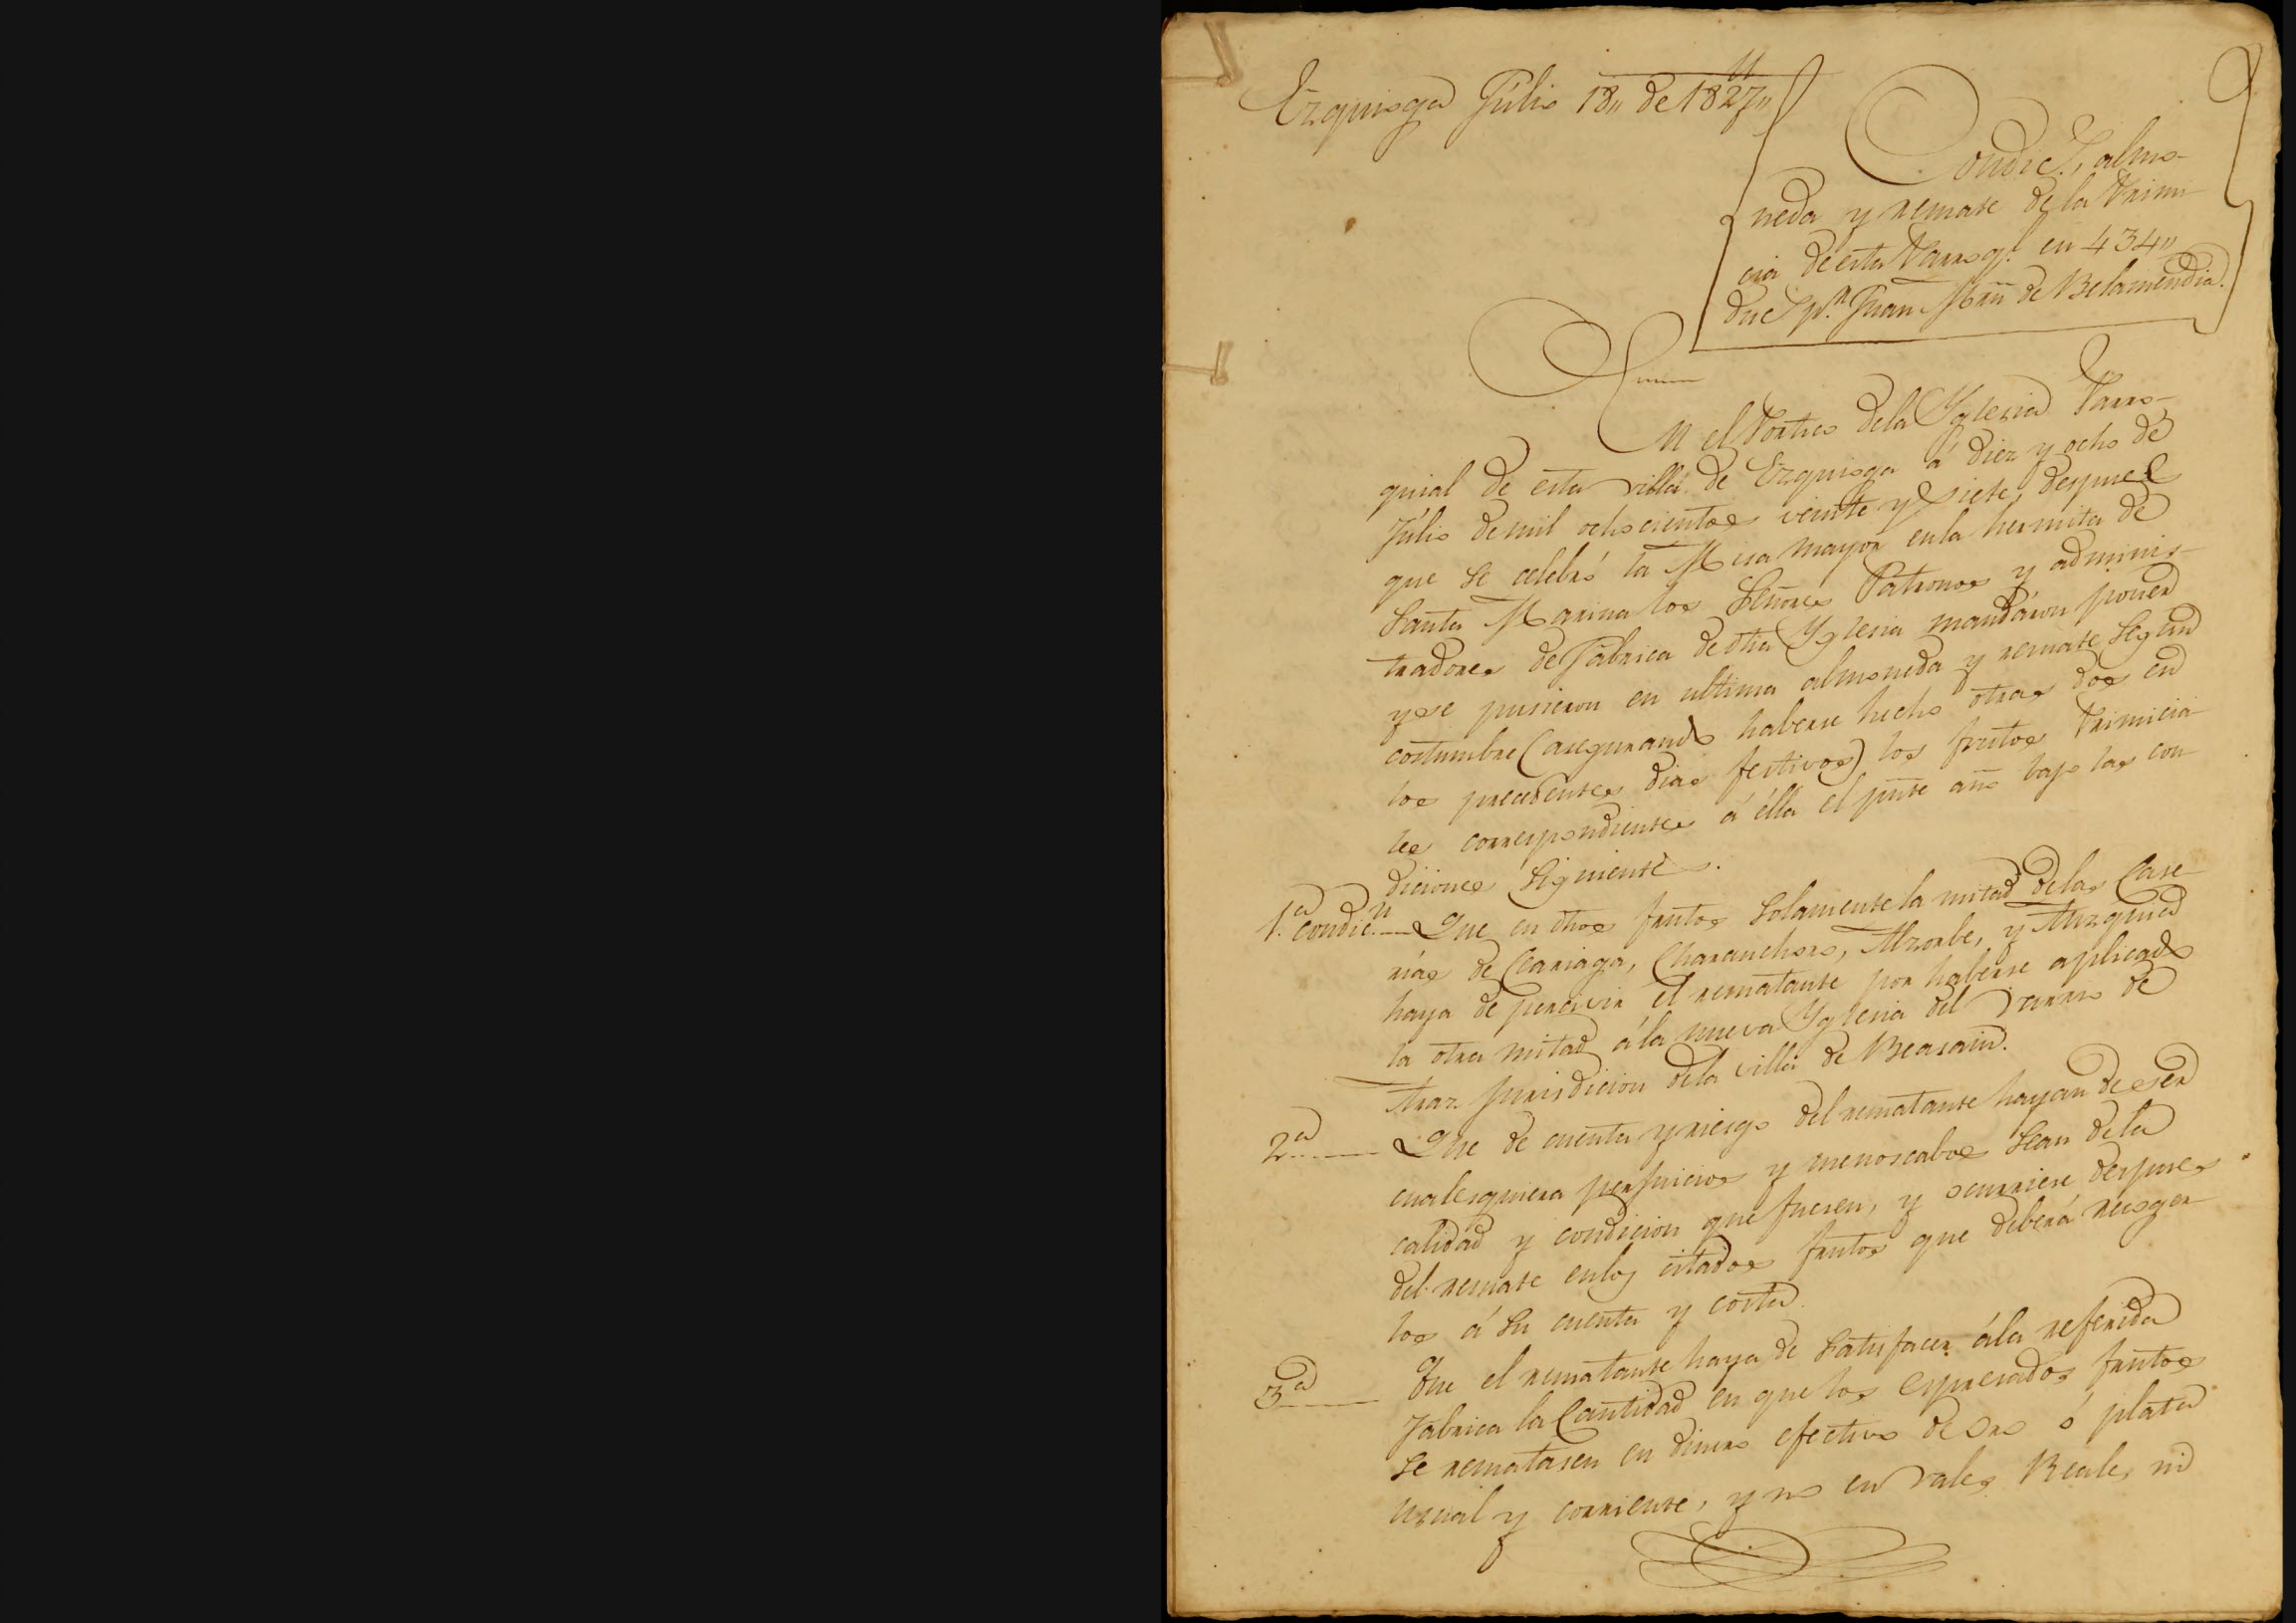 Ezquioga Júlio 18,, de 1827,,
Condic.s, almo-
neda y remate de la Primi-
cia de esta Parroq.l en 434,,
duc.s p.r Juan Mrn de Belamendia.
En el Portico dela Yglesia Parro-
quial de esta villa de Ezquioga á diez y ocho de
Júlio de mil ochocientos veinte y siete, despues
que se celebró la Misa mayor en la hermita de
Santa Marina los Señores Patronos y adminis-
tradores de Fábrica de dha Yglesia mandáron poner
y se pusieron en ultima almoneda y remate segun
costumbre (asegurando haberse hecho otras dos en
los precedentes dias festivos) los frutos Primicia-
les correspondientes á élla el pnte año bajo las con-
diciones siguientes.
1.a condic.n Que en dhos frutos solamente la mitad delas Case-
rías de Cariaga, Charanchoro, Alzorbe, y Auzquien
haya de percivir el rematante por haberse aplicado
la otra mitad á la nueva Yglesia del varrio de
Araz jurisdicion dela villa de Beasain.
2.a Que de cuenta y riesgo del rematante hayan de ser
cualesquiera perjuicios y menoscabos sean dela
calidad y condicion que fuesen, y ocurriese despues
del remate en los citados frutos que deberá recoger-
los á su cuenta y costa.
3.a Que el rematante haya de satisfacer á la referida
Fábrica la Cantidad en que los espresados frutos
se rematasen en dinero efectivo de oro ó plata
usual y corriente, y no en vales Reales ni